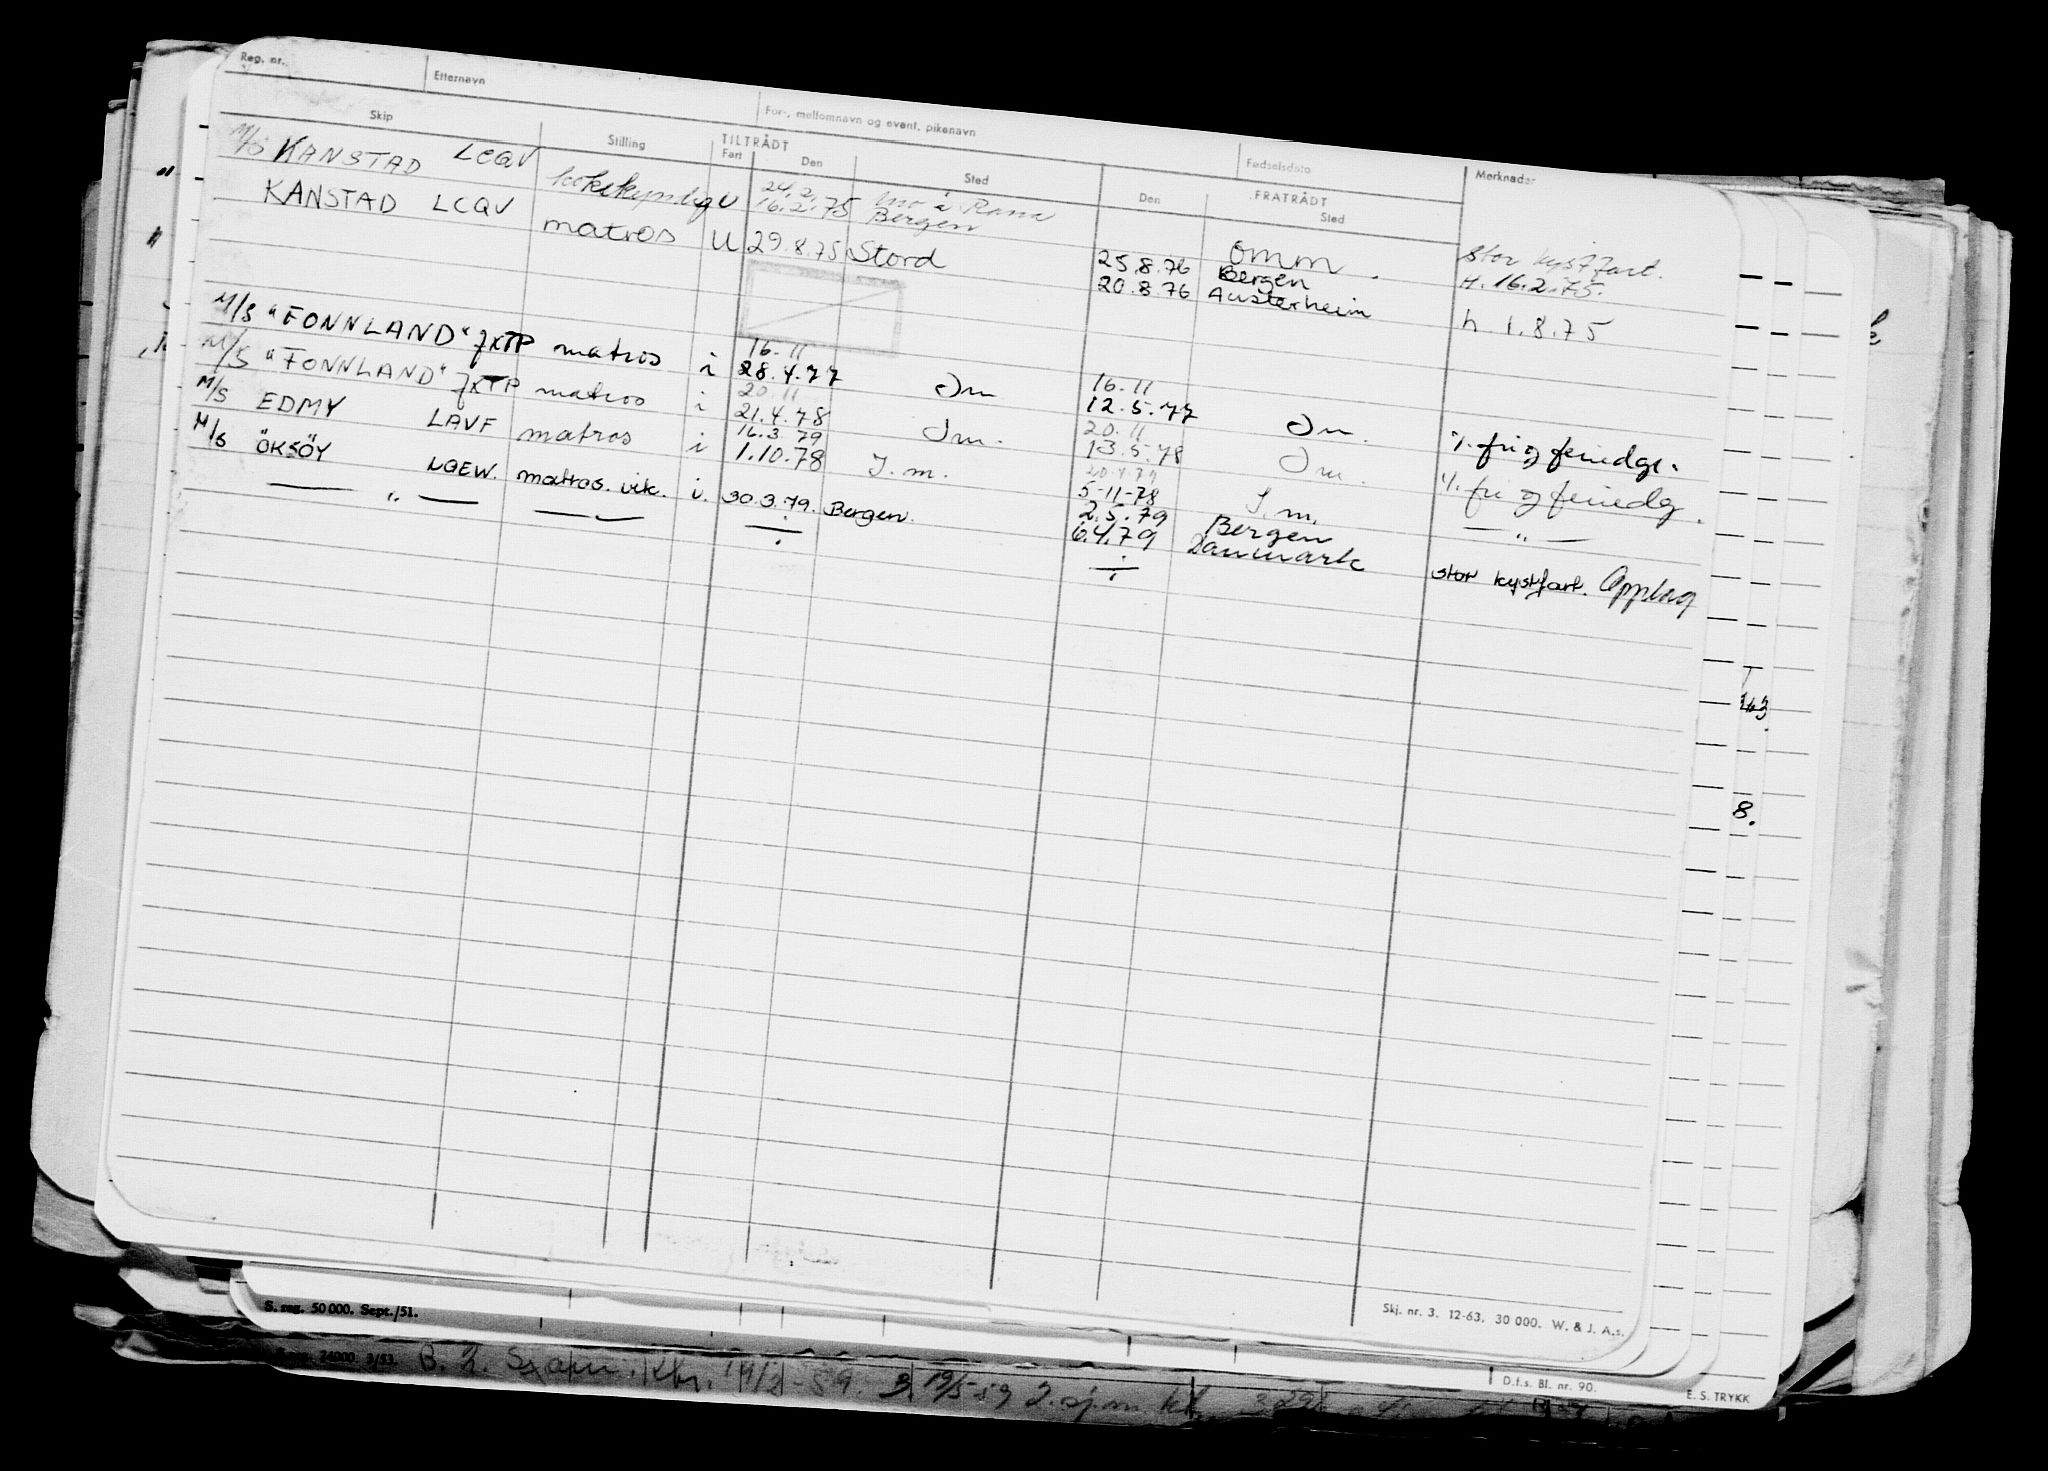 Reg. nr. Etternavn For-, mellomnavn og event. pikenavn Fødselsdato
Skip Stilling TILTRÅDT FRATRÅDT Merknader
Fart Den Sted Den Sted
M/S KANSTAD LCQV kokekyndig U 24.2. Mo i Rana omm. stor kystfart.
16.2.75 Bergen 25.8.76 Bergen H. 16.2.75.
KANSTAD LCQV matros U 29.8.75 Stord 20.8.76 Austerheim h. 1.8.75
M/S "FONNLAND" JXTP matros i 16.11 16.11
28.4.77 Jm 12.5.77 Jm. %. fri og feriedge.
M/S "FONNLAND" JXTP matros i 20.11 20.11
21.4.78 Jm. 13.5.78 Jm. %. fri og feriedg.
M/S EDMY LAVF matros i 16.3.79 20.4.79
1.10.78 I.m. 5-11-78 I.m. — " —
M/S ÖKSÖY LGEW. matros. vik. i. 30.3.79. Bergen. 2.5.79 Bergen
6.4.79 Danmark stor kystfart. Opplag
— " —
Skj. nr. 3. 12-63. 30 000. W. & J. A.s.
S. reg. 50 000. Sept./51.
24000. 3/53.
D.f.s. Bl. nr. 90.
E. S. TRYKK
8.